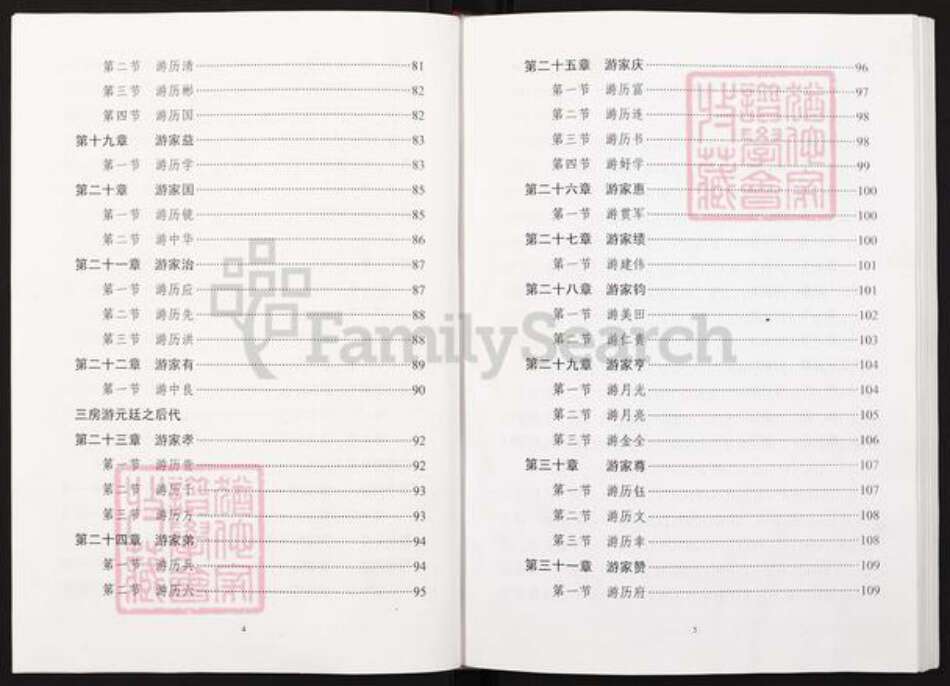 第二节 游历清 81
第三节 游历彬 82
第四节 游历国 82
第十九章 游家益 83
第一节 游历学 83
第二十章 游家国 85
第一节 游历镜 85
第二节 游中华 86
第二十一章 游家治 87
第一节 游历应 87
第二节 游历先 88
第三节 游历洪 88
第二十二章 游家有 89
第一节 游中良 90
三房游元廷之后代
第二十三章 游家孝 92
第一节 游历 92
第二节 游历 93
第三节 游历方 93
第二十四章 游家弟 94
第一节 游历兵 94
第二节 游历六 95
4
第二十五章 游家庆 96
第一节 游历富 97
第二节 游历连 98
第三节 游历书 98
第四节 游好学 99
第二十六章 游家惠 100
第一节 游贯军 100
第二十七章 游家绩 100
第一节 游建伟 101
第二十八章 游家钧 101
第一节 游美田 102
第二节 游仁贵 103
第二十九章 游家亨 104
第一节 游月光 104
第二节 游月亮 105
第三节 游金全 106
第三十章 游家尊 107
第一节 游历钰 107
第二节 游历文 108
第三节 游历幸 108
第三十一章 游家赞 109
第一节 游历府 109
5
FamilySearch